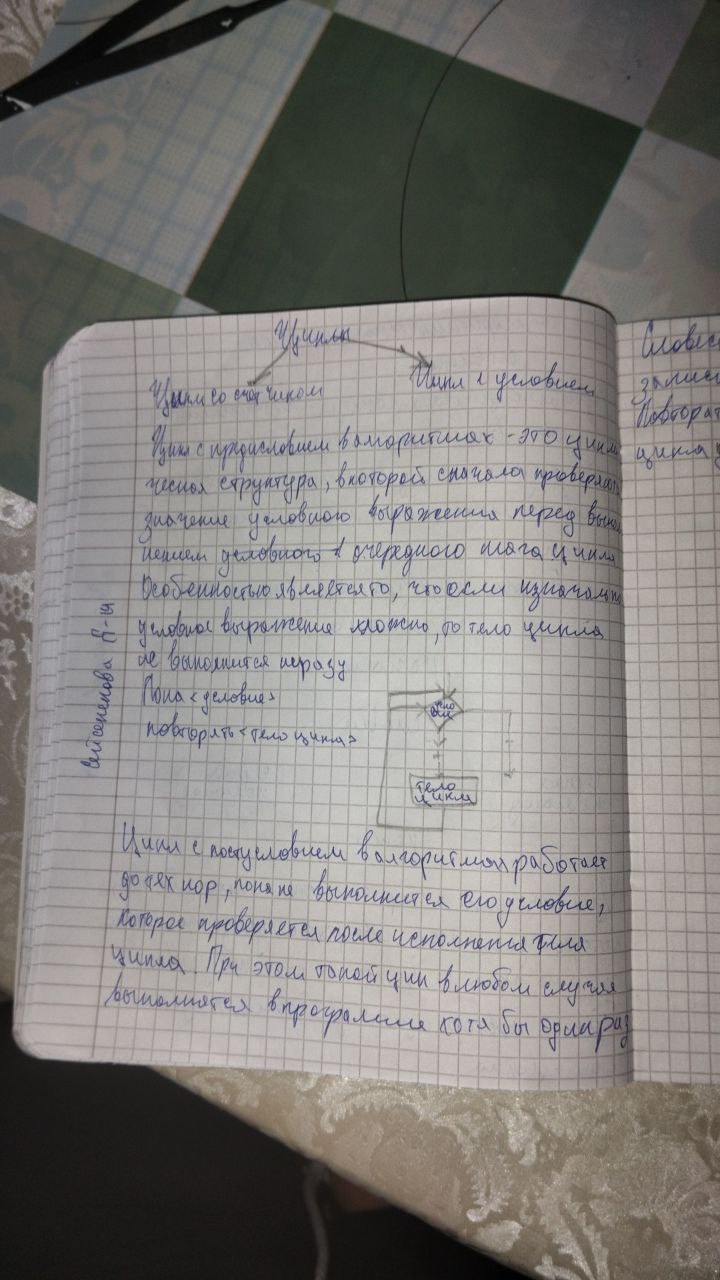 Циклы
Цикл со счётчиком
Цикл с условием
Цикл с предисловием в алгоритмах - это цикли
ческая структура, в которой сначала проверяется
значение условного выражения перед выпол
нением условного в очередного шага цикла
Особенностью является то, что если изначально
условное выражение ложно, то тело цикла
не выполнится ни разу
Пока <условие>
повторять <тело цикла>
тело
цикла
Цикл с постусловием в алгоритмах работает
до тех пор, пока не выполнится его условие,
которое проверяется после исполнения тела
цикла. При этом такой цикл в любом случае
выполнятся в программе хотя бы один раз
Словес
запись
Повторят
цикла